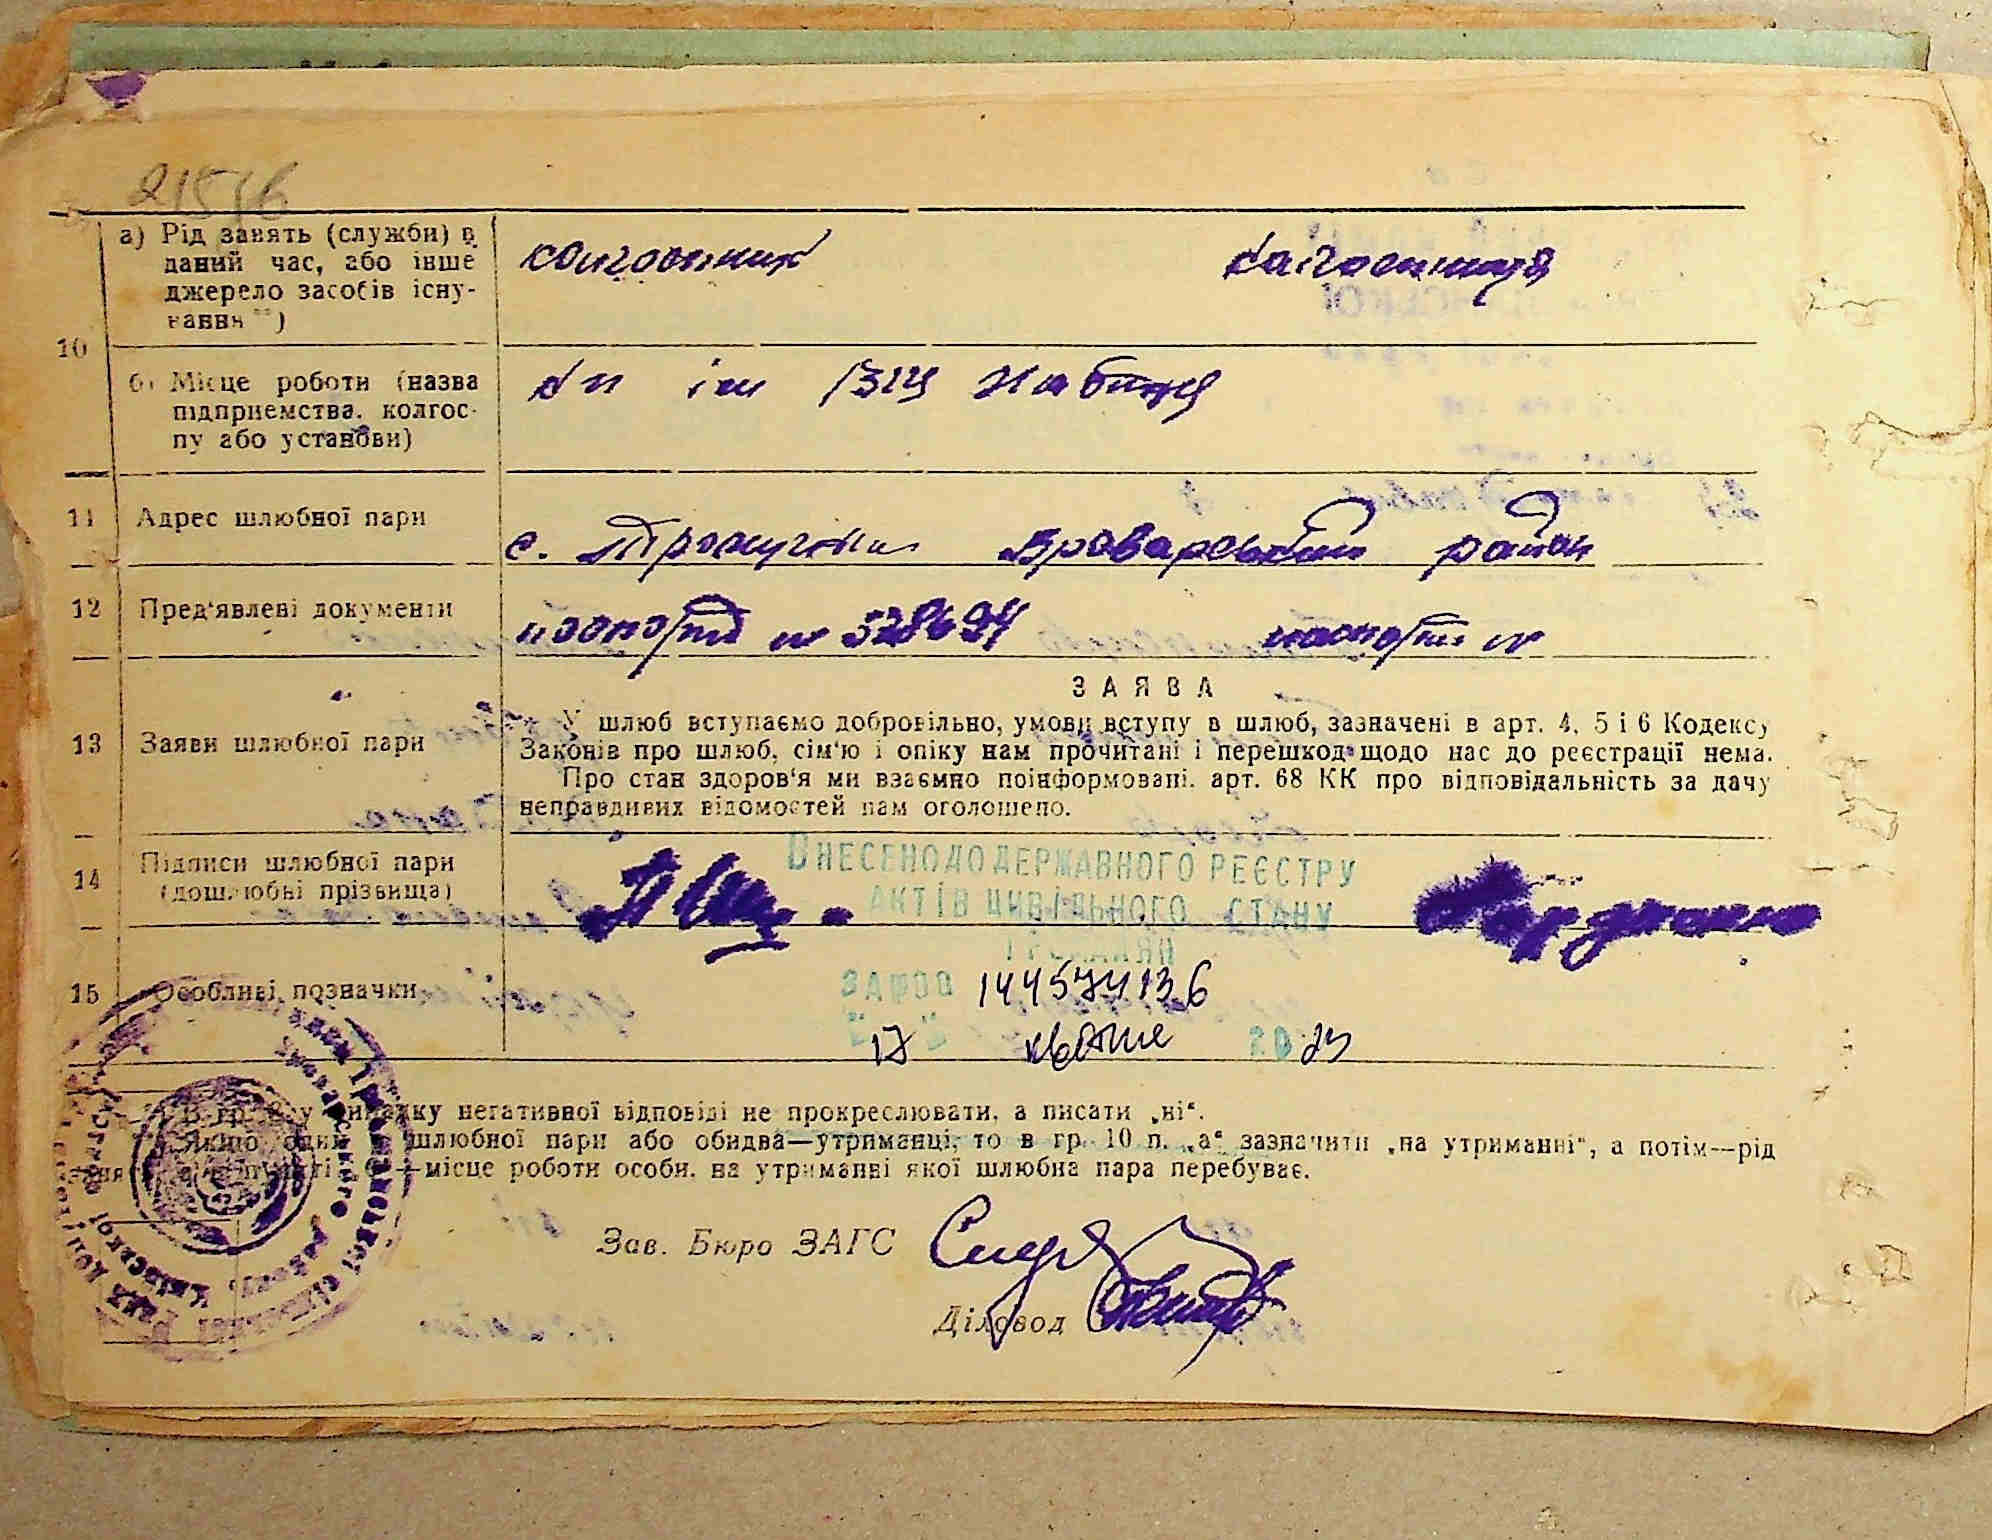 21576
а) Рід занять (служби) в
даний час, або інше
джерело засобів існу-
вання **)
колгоспник колгоспниця
10
б) Місце роботи (назва
підприємства, колгос-
пу або установи)
к-п ім
11 Адрес шлюбної пари
с. Требухів Броварський район
12 Пред'явлені документи
паспорт № 528694 паспорт №
ЗАЯВА
13 Заяви шлюбної пари
У шлюб вступаємо добровільно, умови вступу в шлюб, зазначені в арт. 4, 5 і 6 Кодексу
Законів про шлюб, сім'ю і опіку нам прочитані і перешкод щодо нас до реєстрації нема.
Про стан здоров'я ми взаємно поінформовані. арт. 68 КК про відповідальність за дачу
неправдивих відомостей нам оголошено.
14 Підписи шлюбної пари
(дошлюбні прізвища)
ВНЕСЕНО ДО ДЕРЖАВНОГО РЕЄСТРУ
АКТІВ ЦИВІЛЬНОГО СТАНУ
ГРОМАДЯН
15 Особливі позначки
ЗА № 00 144574136
"17" квітня 20
В гр. у випадку негативної відповіді не прокреслювати, а писати „ні“.
Якщо один шлюбної пари або обидва—утриманці, то в гр. 10 п. „а“ зазначити „на утриманні“, а потім—рід
місце роботи особи, на утриманні якої шлюбна пара перебуває.
Зав. Бюро ЗАГС
Діловод